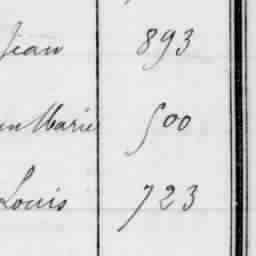 Jean 893
Marie 500
Louis 723